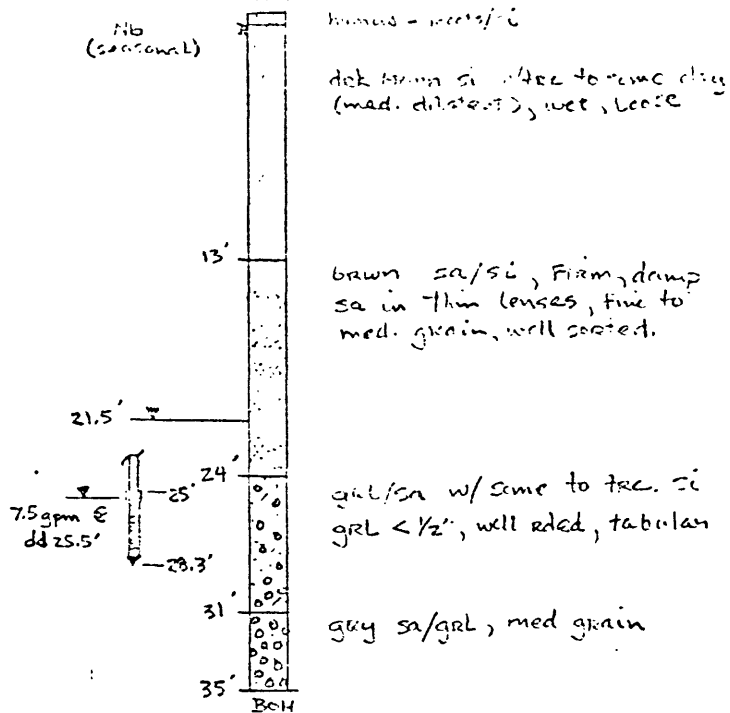 Nb
(seasonal)
humus - roots/si
drk brown si w/trc to some clay
(med. dilatent), wet, loose
13'
brwn sa/si, Firm, damp
sa in thin lenses, fine to
med. grain, well sorted.
21.5'
24'
25'
7.5 gpm @
dd 25.5'
28.3'
grl/sa w/ some to trc. si
GRL < 1/2", well rded, tabular
31'
gry sa/GRL, med grain
35'
BOH